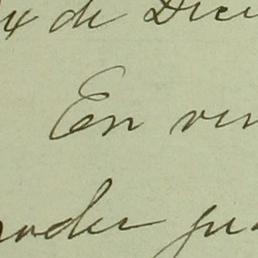 de Dici
En vir
poder ju